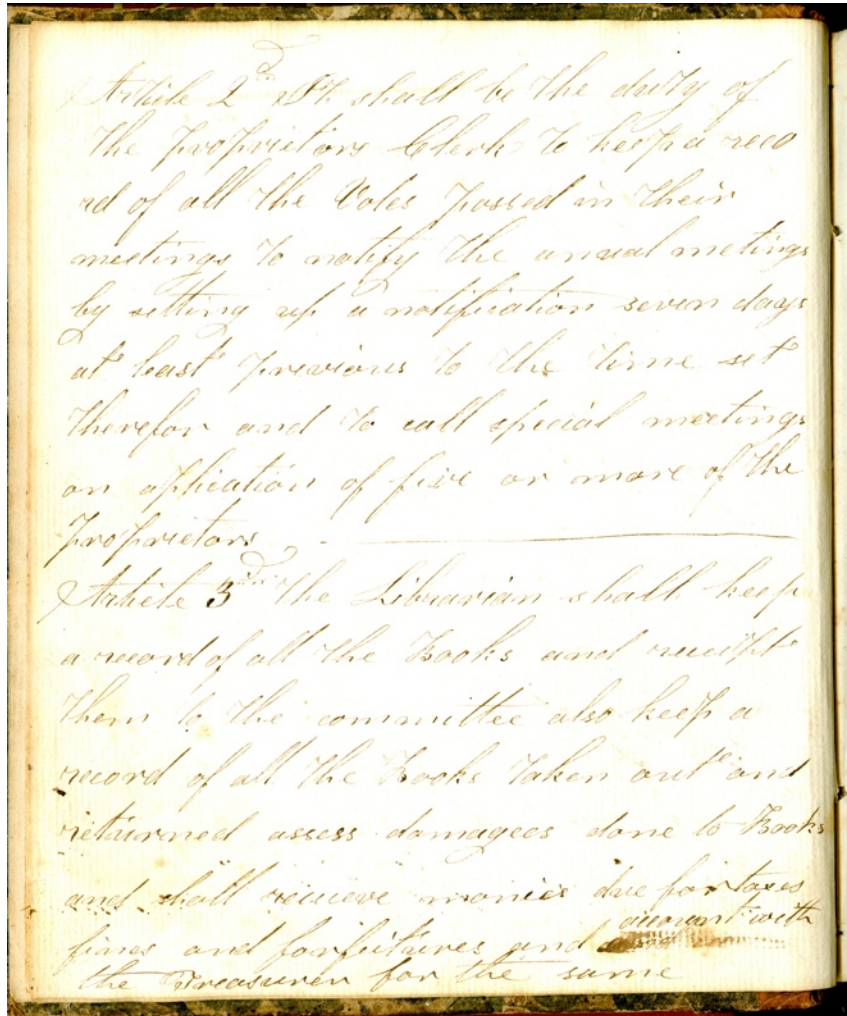 Article 2nd It shall be the duty of
the proprietors Clerk to keep a reco
rd of all the Votes passed in their
meetings to notify the anual metings
by setting up a notification seven days
at least previous to the time set
therefor and to call special meetings
on aplication of five or more of the
proprietors
Article 3rd The Librarian shall keep
a record of all the Books and receipt
them to the committee also keep a
record of all the Books taken out and
returned assess damagees done to Books
and shall recieve monies due for taxes
fines and forfeitures and account with
the Treasurer for the same